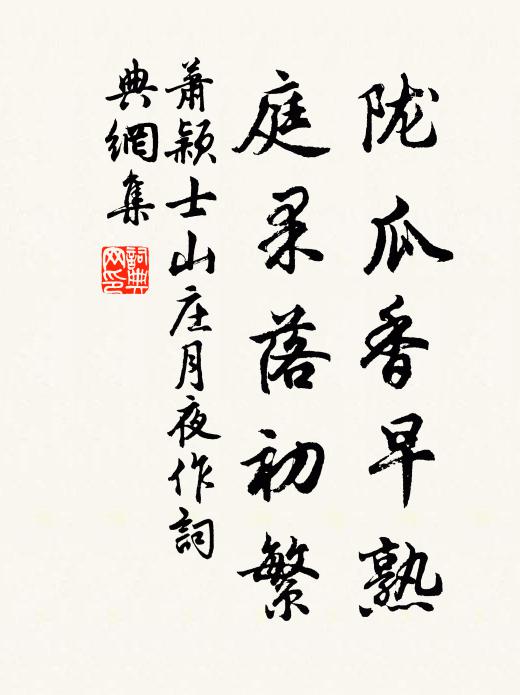 陇瓜香早熟
庭果落初繁
萧颖士山庄月夜作詞
典網集
詞典
网印